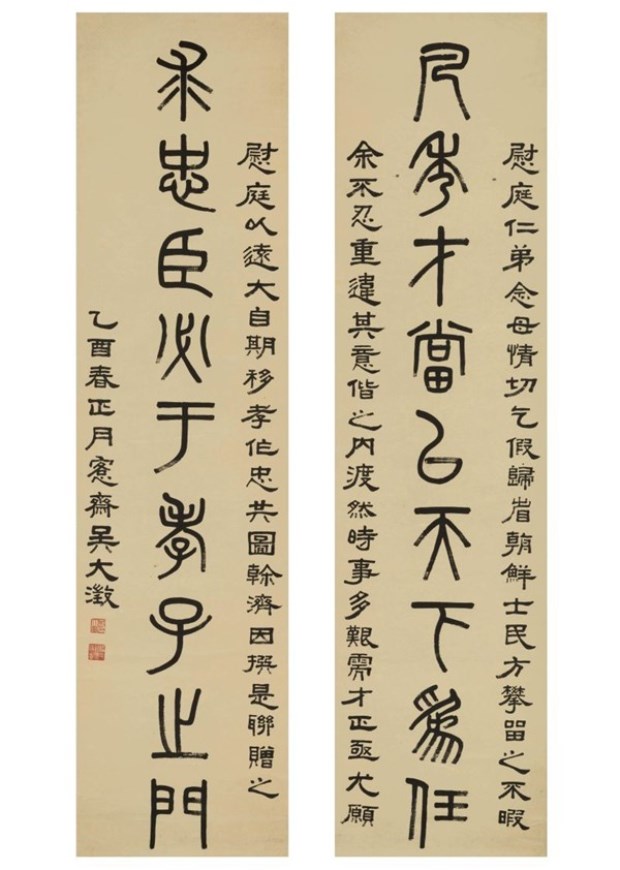 慰庭仁弟念母情切乞假歸省朝鮮士民方攀留之不暇
凡秀才當以天下爲任
余不忍重違其意偕之內渡然時事多艱需才正亟尤願
慰庭以遠大自期移孝作忠共圖榦濟因撰是聯贈之
求忠臣必于孝子之門
乙酉春正月愙齋吳大澂